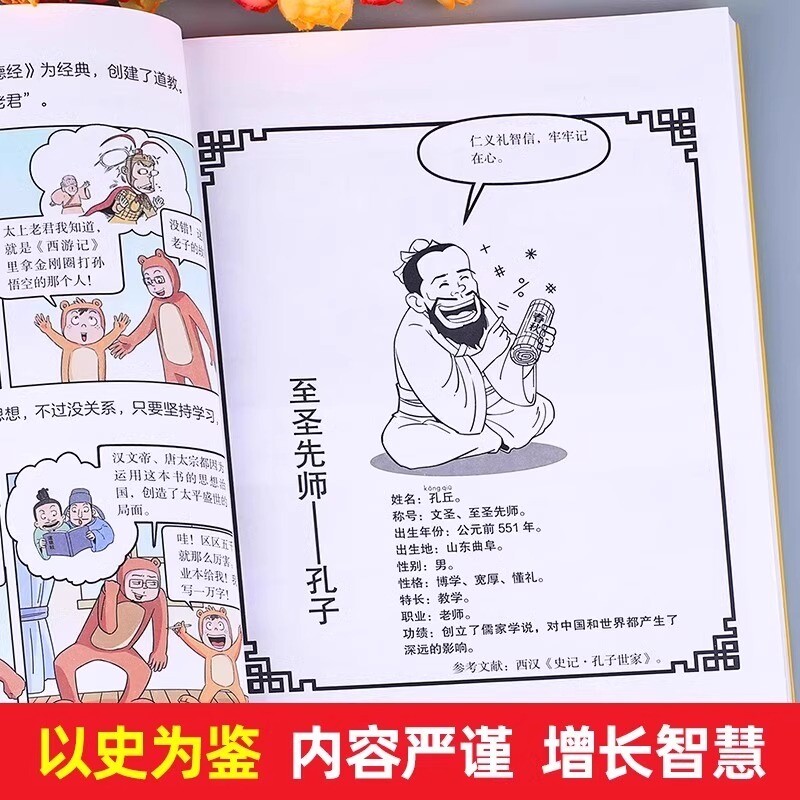 德经》为经典，创建了道教。
老君”。
太上老君我知道，
就是《西游记》
里拿金刚圈打孙
悟空的那个人！
没错！
老子的
思想，不过没关系，只要坚持学习，
汉文帝、唐太宗都因为
运用这本书的思想治
国，创造了太平盛世的
局面。
道德经
哇！区区五千
就那么厉害，
业本给我！我
写一万字！
仁义礼智信，牢牢记
在心。
春秋
至圣先师——孔子
kǒng qiū
姓名：孔丘。
称号：文圣、至圣先师。
出生年份：公元前 551 年。
出生地：山东曲阜。
性别：男。
性格：博学、宽厚、懂礼。
特长：教学。
职业：老师。
功绩：创立了儒家学说，对中国和世界都产生了
深远的影响。
参考文献：西汉《史记·孔子世家》。
以史为鉴 内容严谨 增长智慧